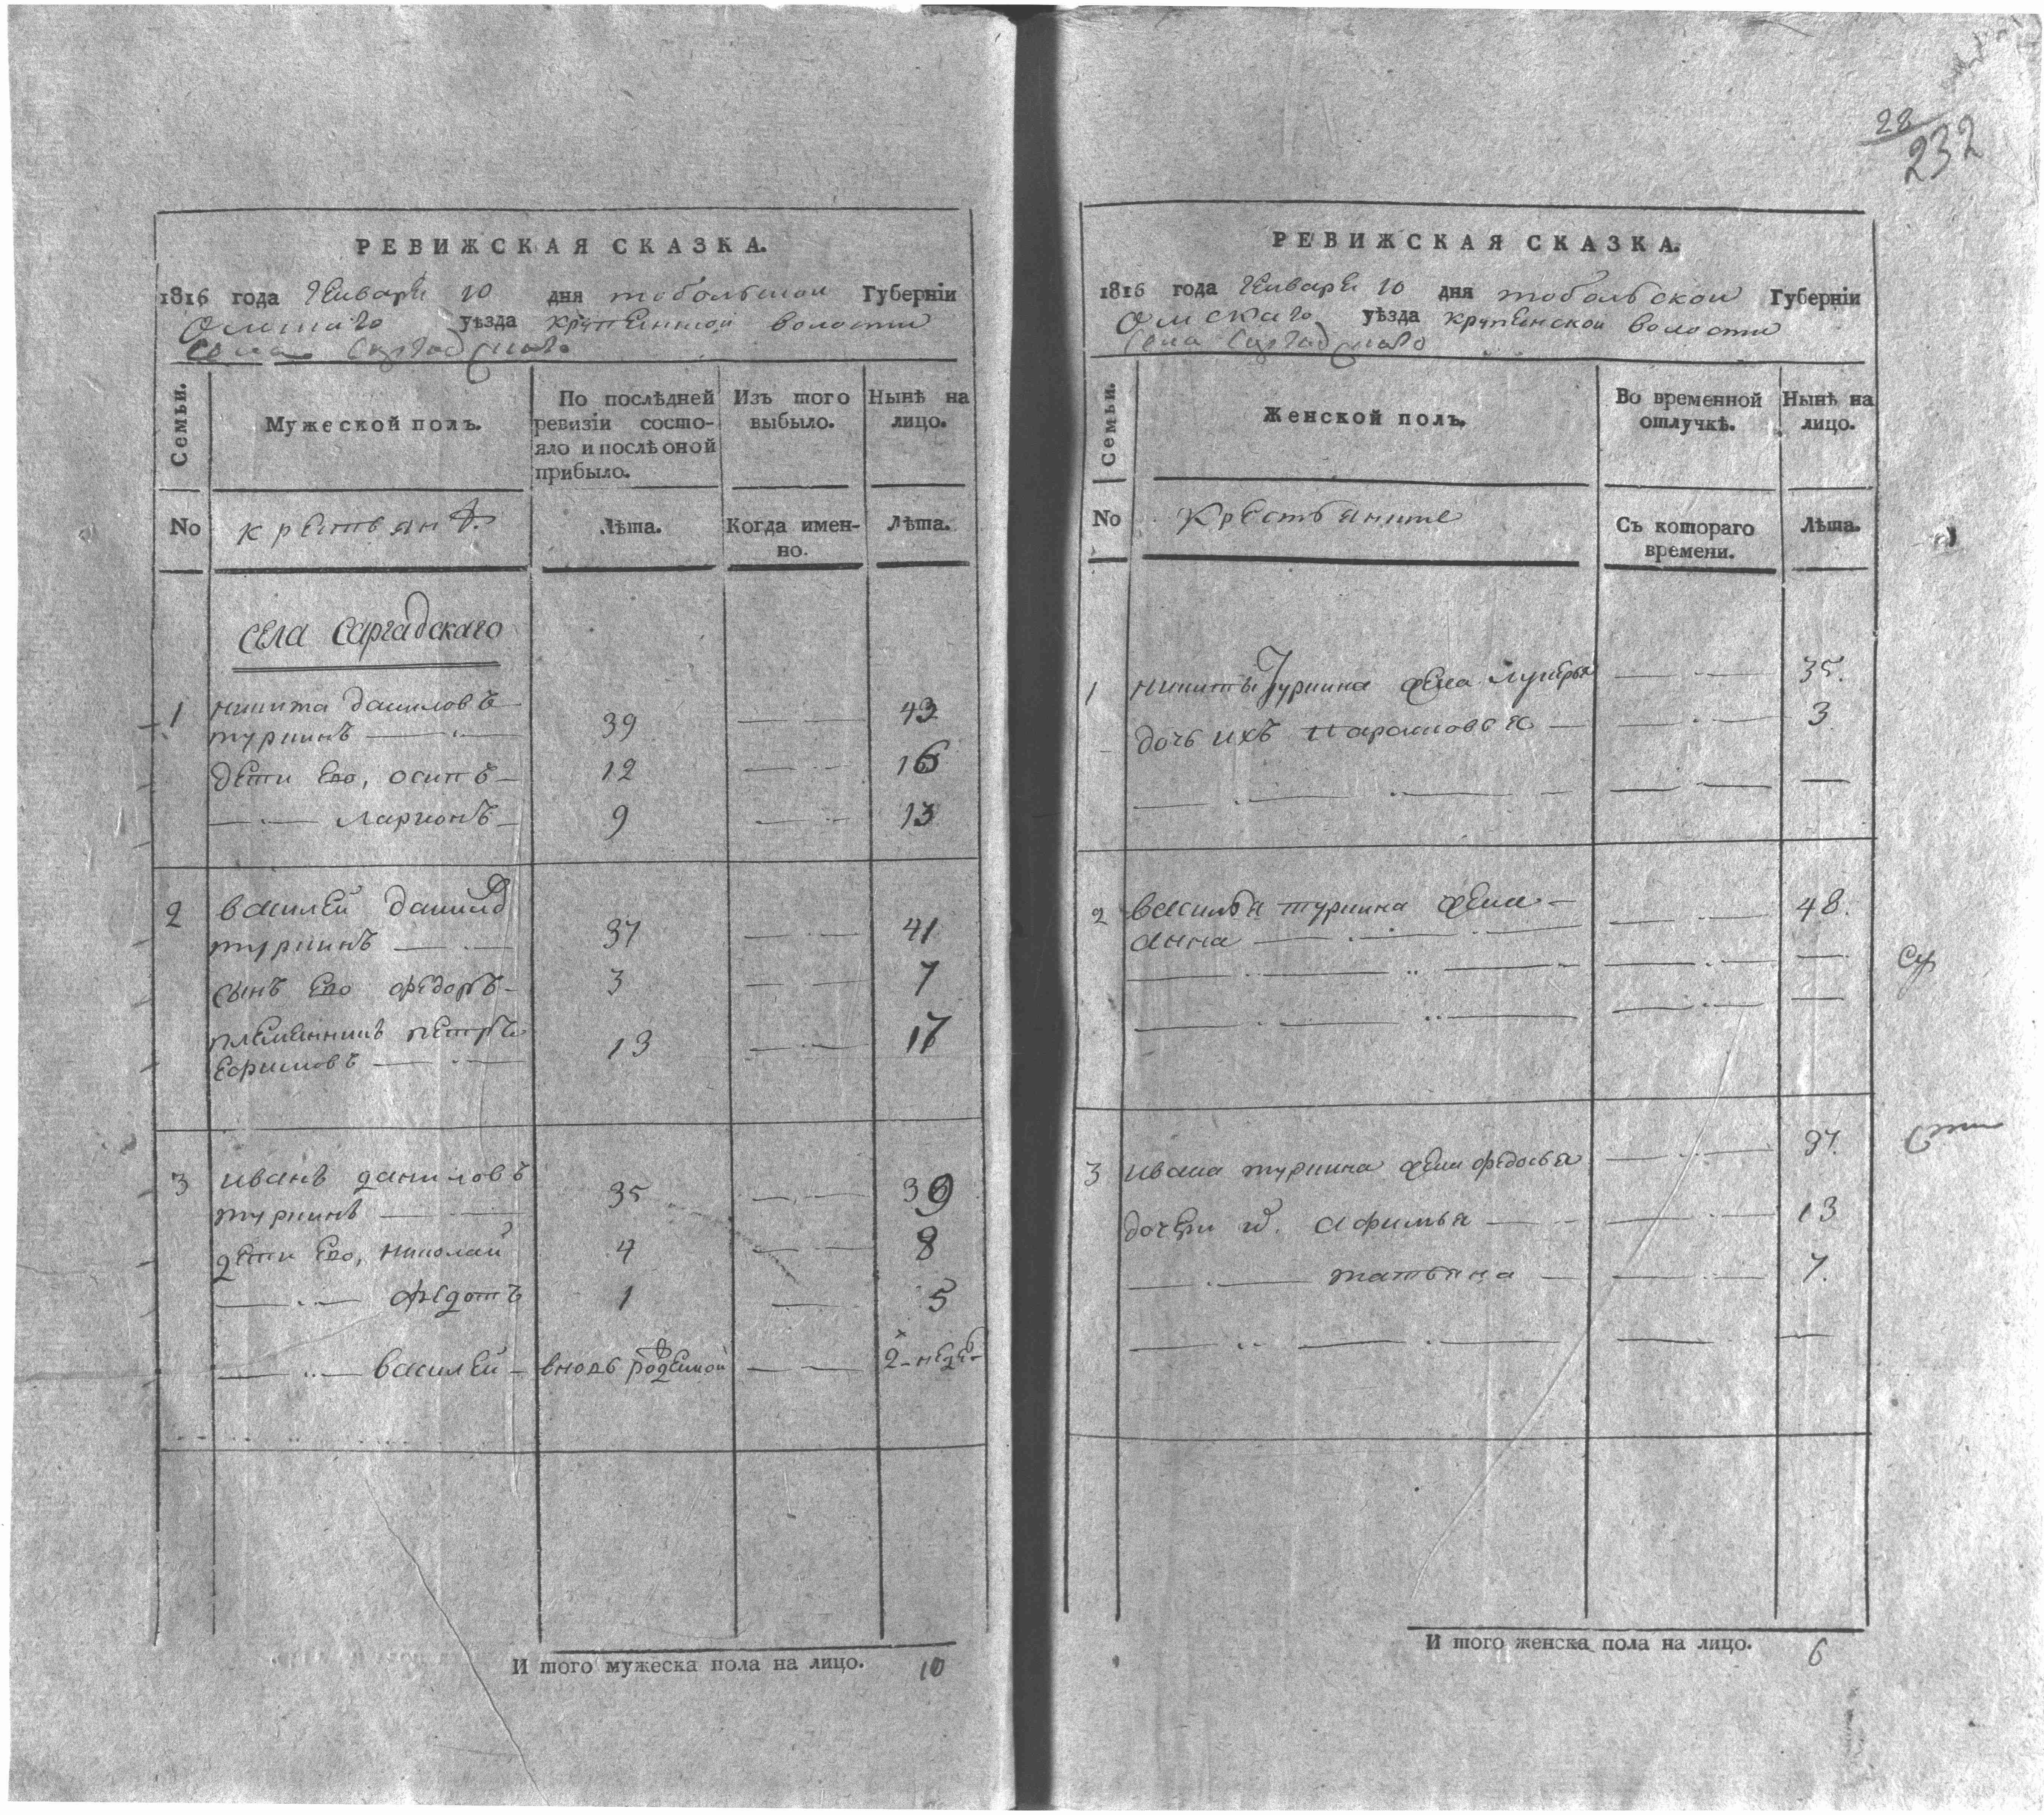 28
232
РЕВИЖСКАЯ СКАЗКА.
1816 года Генваря 10 дня тобольской Губерніи
Омскаго уѣзда крупенской волости
села Саргадскаго
Семьи.
Мужеской полъ.
По послѣдней ревизіи состо-
яло и послѣ оной прибыло.
Изъ того выбыло.
Нынѣ на лицо.
No
крестьянъ.
Лѣта.
Когда имен-
но.
Лѣта.
села Саргадскаго
1 никита даниловъ
туркинъ 39 43
дети Ево, осипъ 12 16
Ларионъ 9 13
2 василей данилов
туркинъ 37 41
сынъ Ево федоръ 3 7
племенникъ петръ
Ефимовъ 13 17
3 иванъ даниловъ
туркинъ 35 39
дети Ево, николай 4 8
федотъ 1 5
василей вновь рожденной 2 недѣ
И того мужеска пола на лицо. 10
РЕВИЖСКАЯ СКАЗКА.
1816 года Генваря 10 дня тобольской Губерніи
Омскаго уѣзда крупенской волости
села Саргадскаго
Семьи.
Женской полъ.
Во временной отлучкѣ.
Нынѣ на лицо.
No
Съ котораго
времени.
Лѣта.
1 никиты Туркина жена Лукерья 35.
дочь ихъ 3
2 василья туркина жена 48.
анна
3 ивана туркина жена федосья 37.
дочери 13
татьяна 7.
И того женска пола на лицо. 6